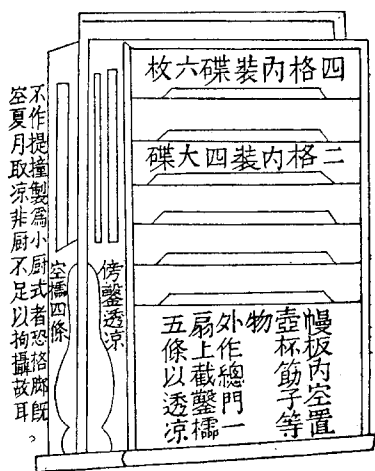 四格內裝碟六枚
二格內裝四大碟
幔板內空置
壺杯筯子等
物
外作總門一
扇上截鑿櫺
五條以透凉
傍鑿透凉
空櫺四條
不作提撞製爲小厨式者恐格廊旣
空夏月取凉非厨不足以拘攝故耳。